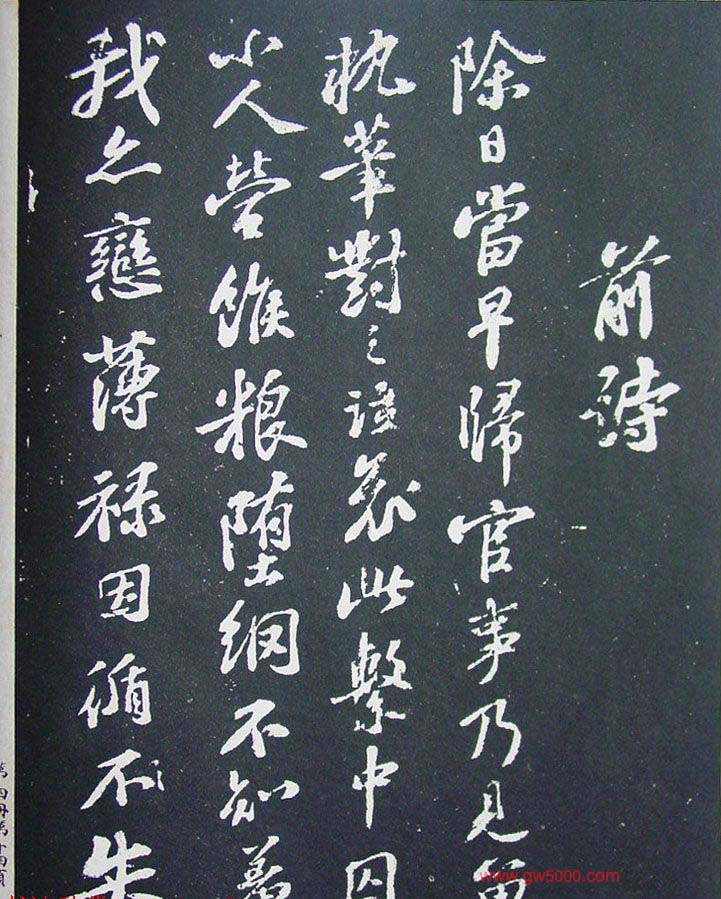 前詩
除日當早歸官事乃見留
執筆對之泣哀此繫中囚
小人營餱粮墮網不知羞
我亦戀薄祿因循不失
第四冊第十四頁
www.gw5000.com